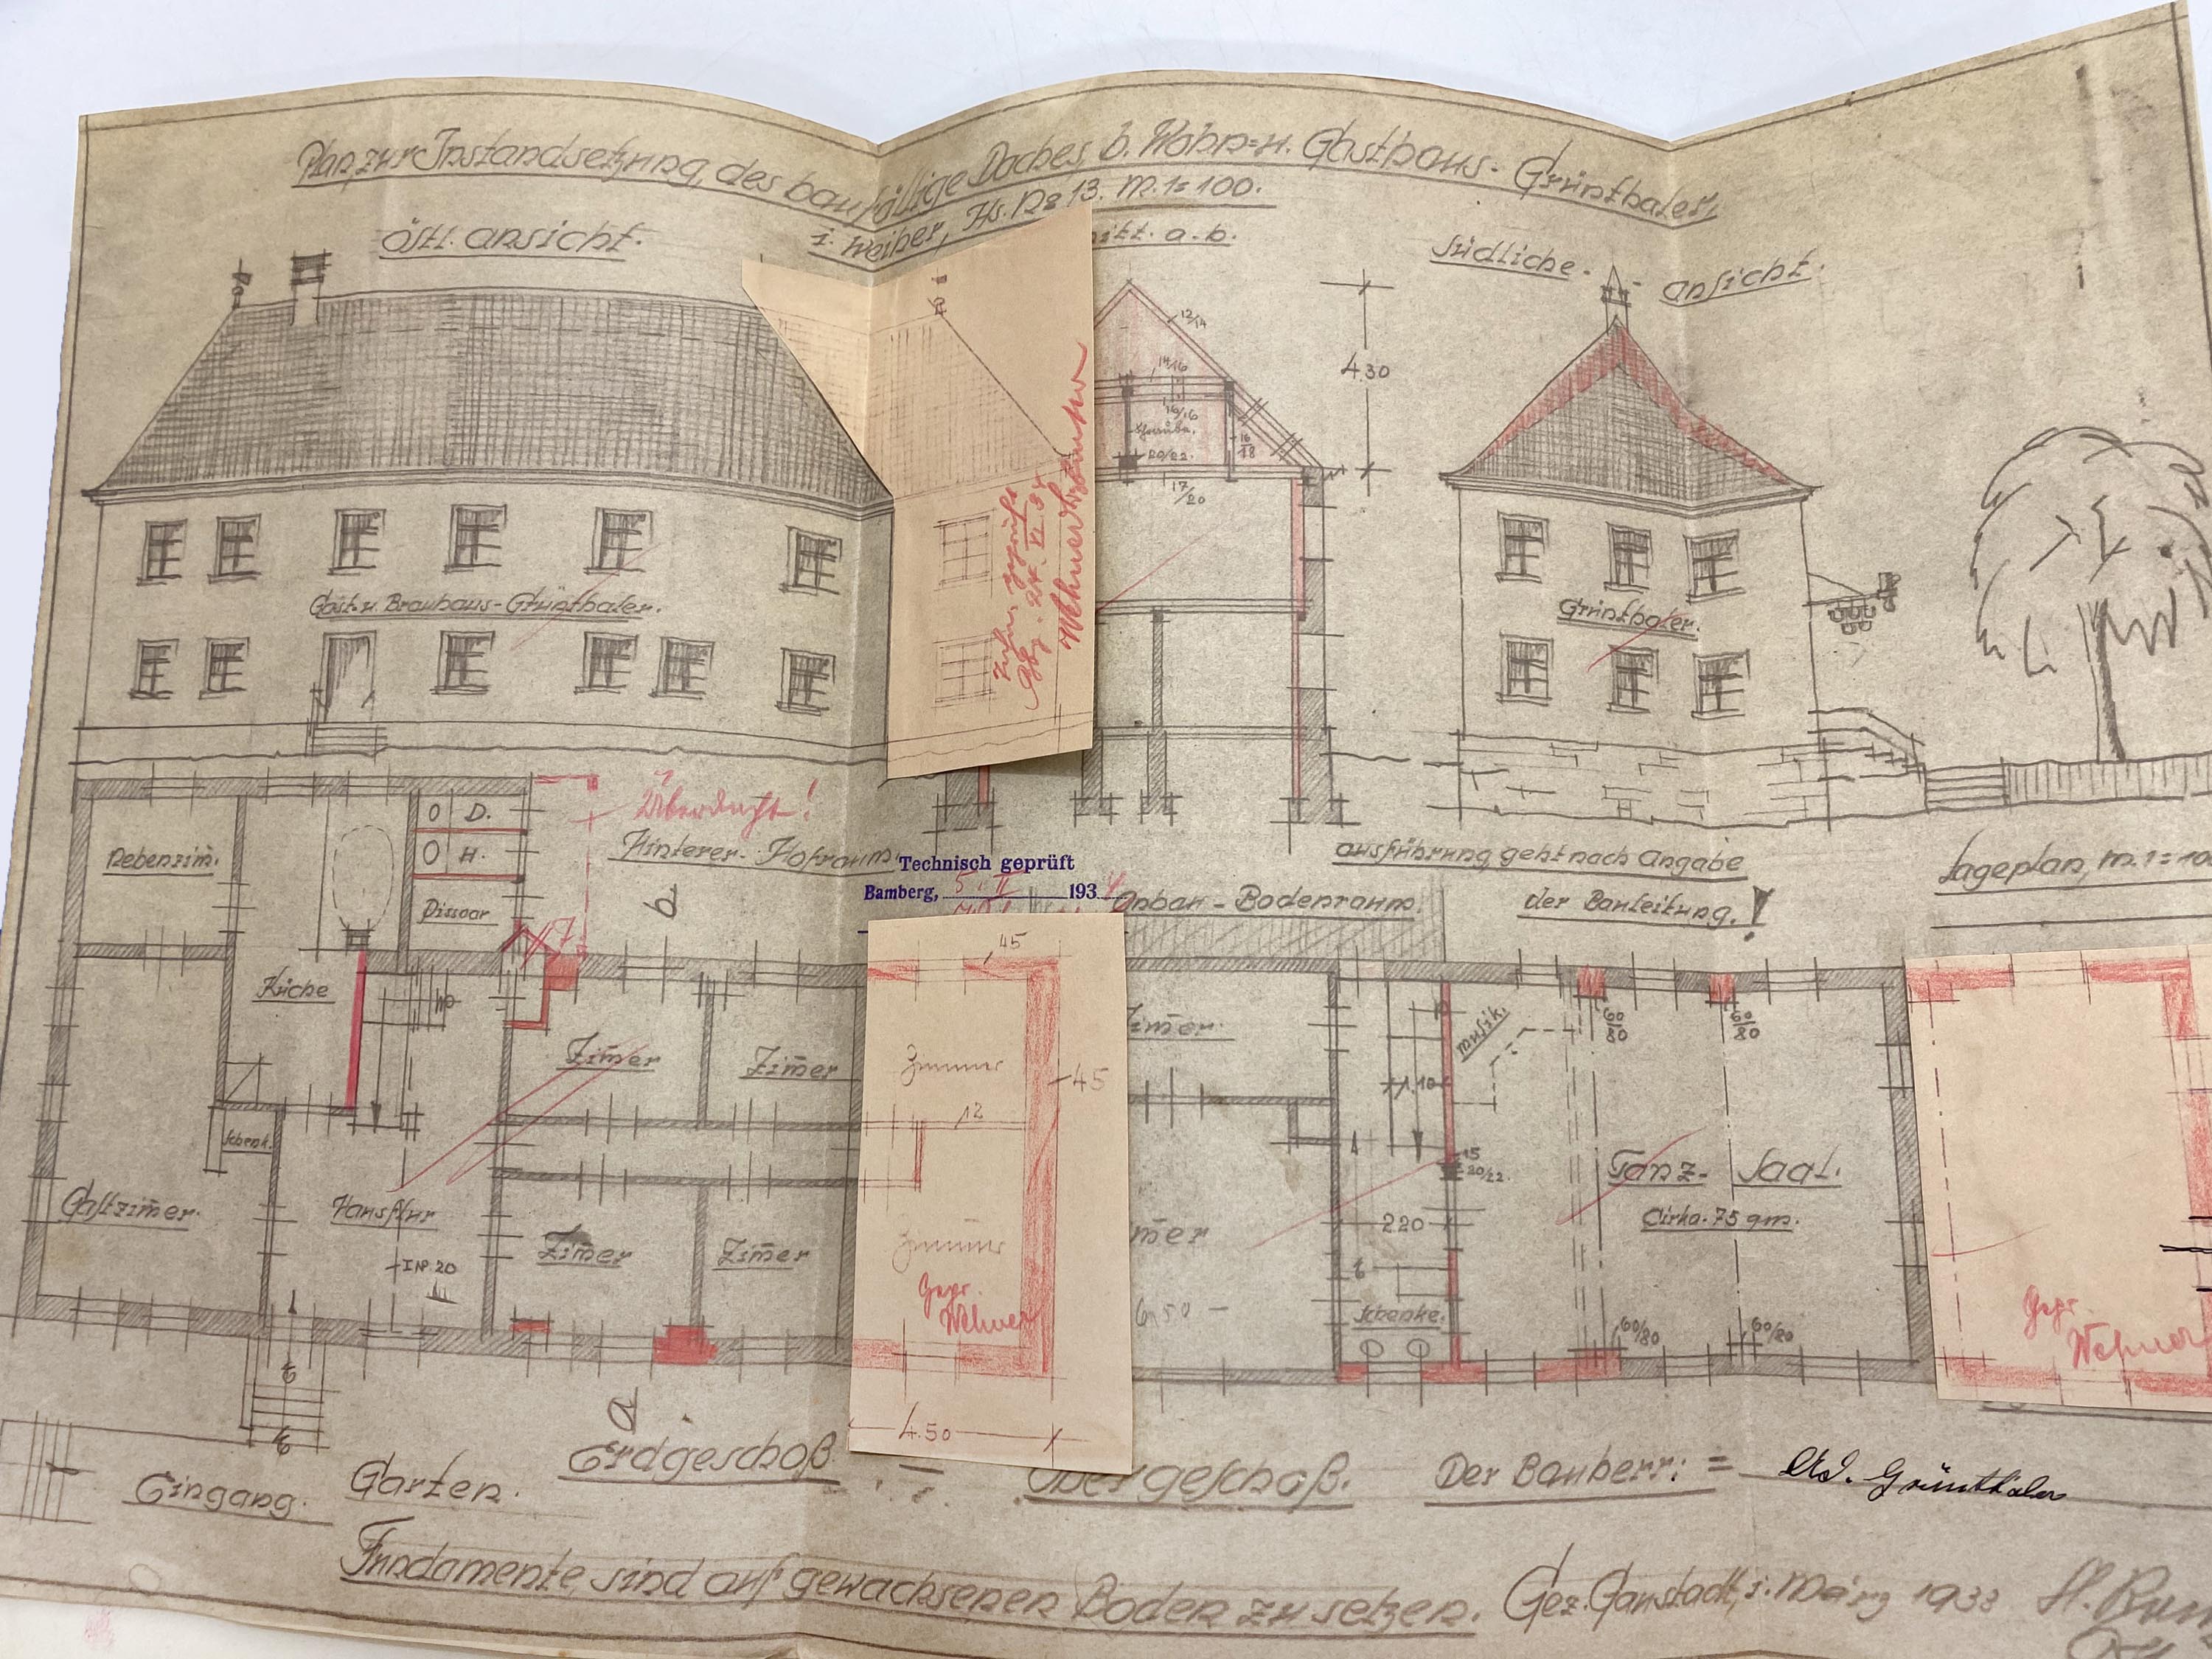 Plan, zur Instandsetzung, des baufällige Daches, b. Wohn= u. Gasthaus- Grünthaler,
i. Weiher, Hs. No 13. M. 1=100.
Östl. ansicht.
a-b.
Südliche- ansicht.
12/14
14/16
16/16
20/22.
16/18
17/20
4.30
Gast- u. Brauhaus-Grünthaler.
Grünthaler.
gepr.
24. VI. 34
Überdacht!
Hinterer- Hofraum.
Technisch geprüft
Bamberg, 5. II 193
Anbau - Bodenraum.
ausführung, geht nach Angabe
der Bauleitung.!
Lageplan, M. 1=10
Nebenzim.
O D.
O H.
Pissoar
b
Küche
Schenk.
Gastzimer.
Hausflur
INP. 20
Zimer
Zimer
Zimer
Zimer
45
Zimmer
45
12
Zimmer
Gepr.
Wehner
4.50
Zimer.
mer
6,50
1.10
220
Schenke.
Musik.
15
20/22.
60/80
60/80
Tanz- Saal.
Cirka. 75 qm.
60/80
60/80
Gepr.
Wehner
a
Eingang.
Garten.
Erdgeschoß
Obergeschoß.
Der Bauherr: = Ad. Grünthaler
Fundamente, sind auf gewachsenen Boden zu setzen.
Gez. Gaustadt, i. März 1933